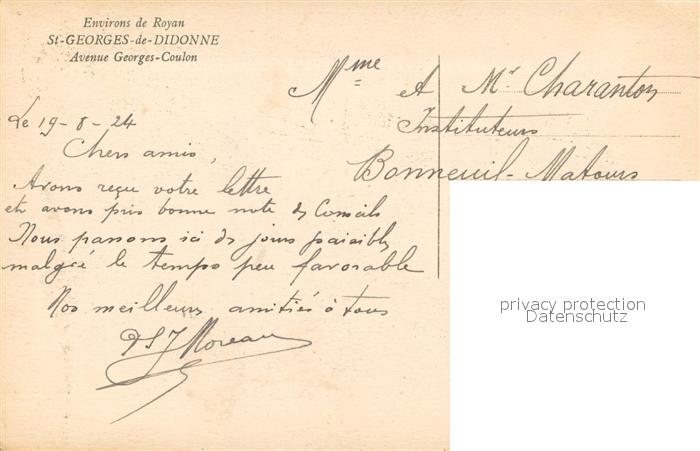 Environs de Royan
St-GEORGES-de-DIDONNE
Avenue Georges-Coulon
Le 19-8-24
Chers amis,
Avons reçu votre lettre
et avons pris bonne note des Conseils
Nous passons ici des jours paisibles
malgré le temps peu favorable
Nos meilleurs amitiés à tous
Moreau
Mme et Mr Charanton
Instituteurs
Bonneuil-Matours
privacy protection
Datenschutz